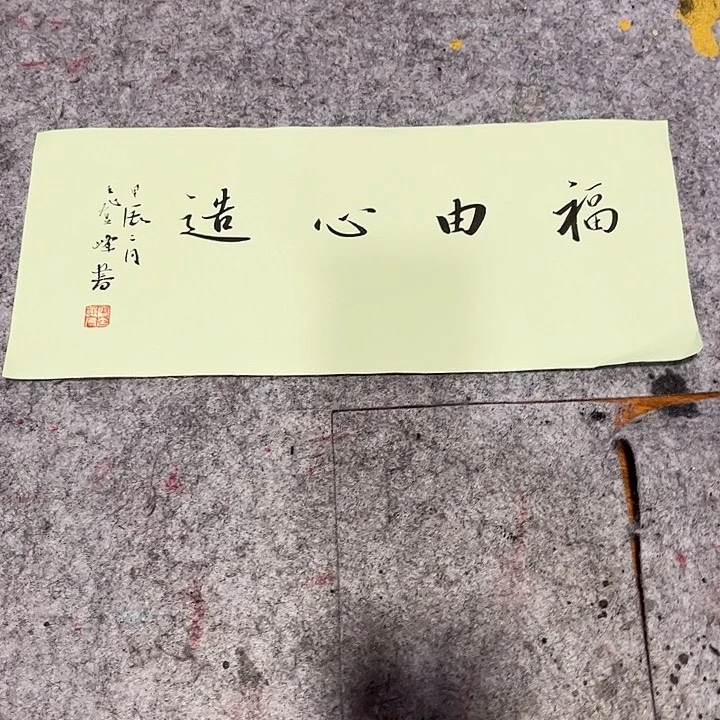 福由心造
甲辰二月
峰書